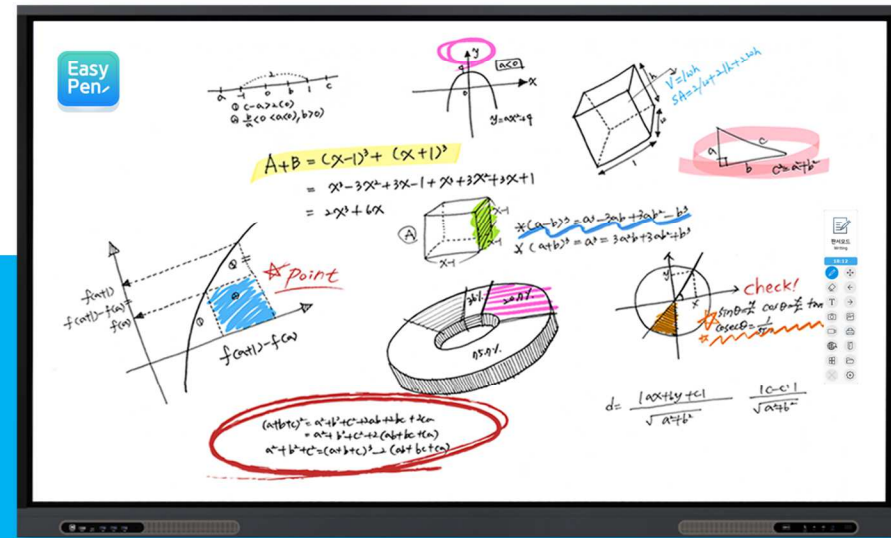 Easy
Pen
2
a -1 0 b 1 c
① c-a>2(0)
② b/a<0 <a<0, b>0)
y
a<0
x
0
y=ax²+q
V=lwh
SA=2lw+2lh+2wh
h
w
l
a
c
b
c²=a²+b²
A+B = (x-1)³ + (x+1)³
= x³-3x²+3x-1+x³+3x²+3x+1
= 2x³+6x
A
x-1
x-1
x-1
*(a-b)³=a³-3ab+3ab²-b³
*(a+b)³=a³=3a²b+3ab²+b³
f(a+1)
f(a+1)-f(a)=
f(a)
Point
f(a+1)-f(a)
check!
y
x
cosθ
tan
cosecθ=
d= |ax+by+c| / √a²+b²
|c-c'| / √a²+b²
(a+b+c)²=a²+b²+c²+2ab+2bc+2ca
=a²+b²+c²+2(ab+bc+ca)
a²+b²+c²=(a+b+c)³-2(ab+bc+ca)
판서모드
Writing